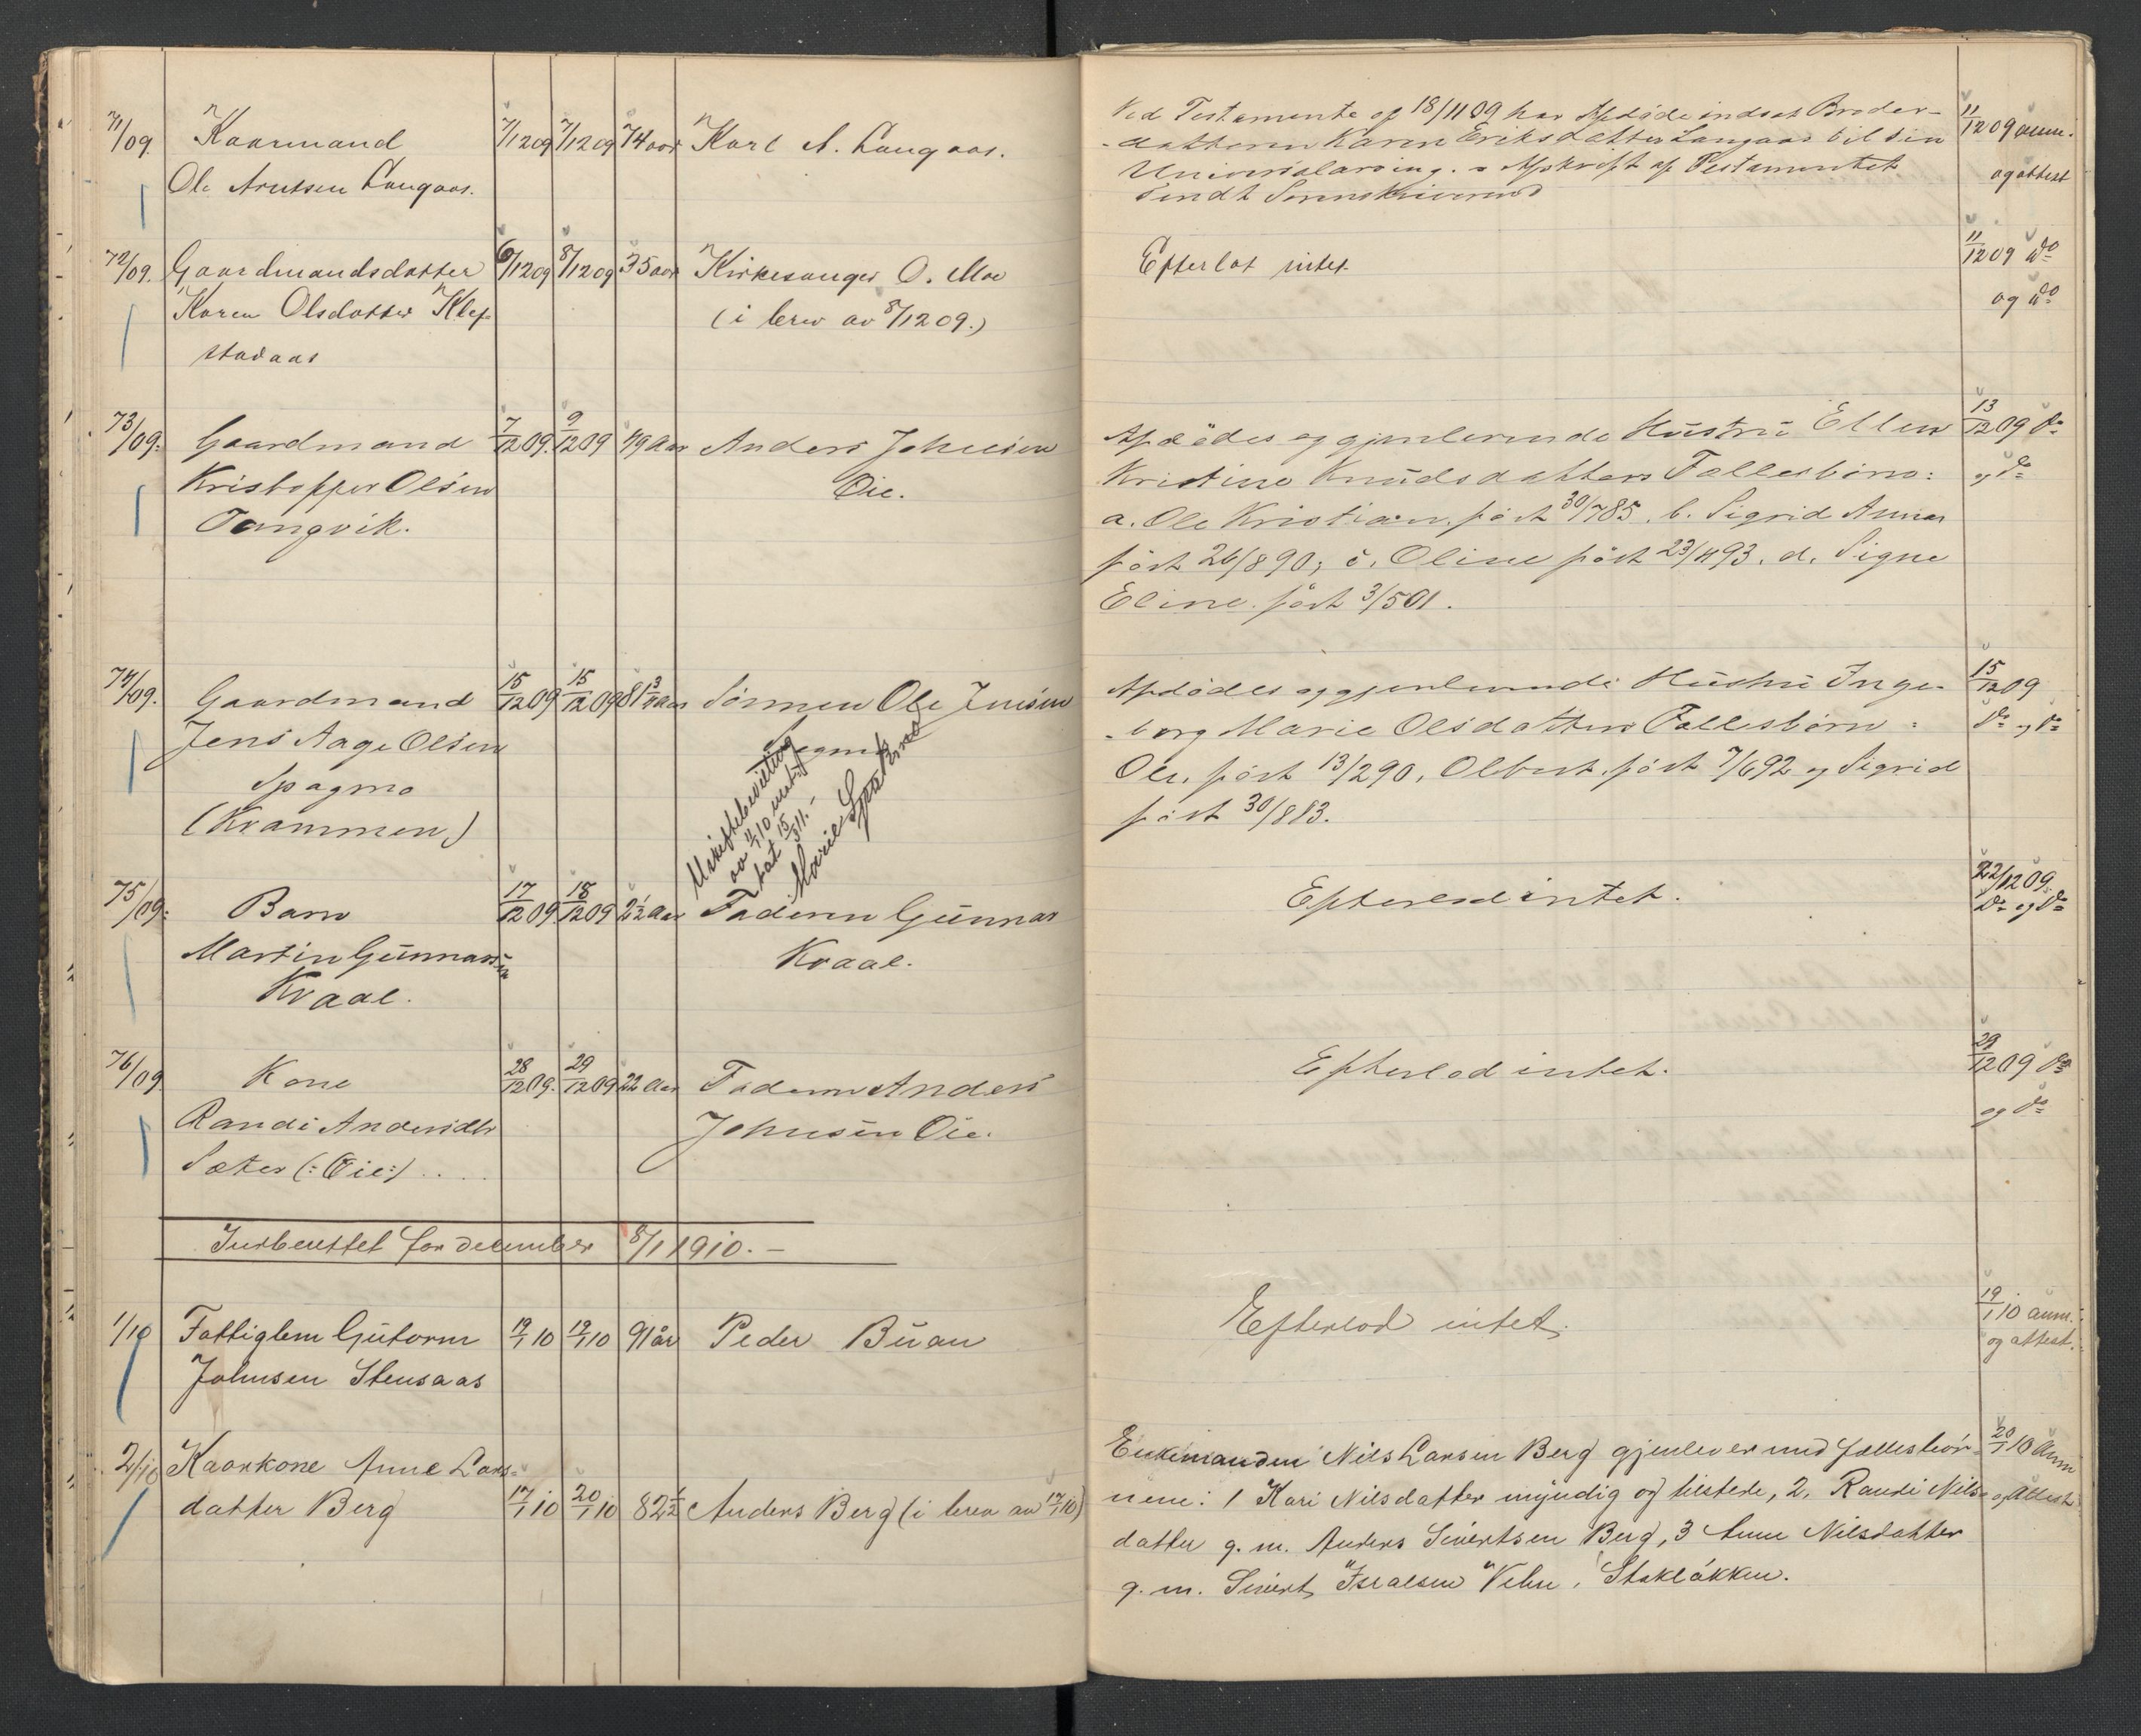 71/09. Kaarmand 7/12 09 7/12 09 74 aar Karl A. Langaas.
Ole Arntsen Langaas.
Ved Testamente af 18/11 09 har Afdöde indsat Broder-
datteren Karen Eriksdatter Langaas til sin
Universalarving. Afskrift af Testamentet
sendt Sorenskriveren
11/12 09 anm.
og attest
72/09. Gaardmandsdatter 6/12 09 8/12 09 35 aar Kirkesanger O. Moe
Karen Olsdatter Klef-
stadaas
(i brev av 8/12 09.)
Efterlot intet.
11/12 09 do
og do
73/09. Gaardmand 7/12 09. 9/12 09 49 Aar Anders Johnsen
Kristoffer Olsen
Tangvik.
Öie.
Afdödes og gjenlevende Hustru Ellen
Kristine Knudsdatters Fællesbörn:
a. Ole Kristian, födt 30/7 85. b. Sigrid Anna
födt 26/8 90; c. Oline födt 23/4 93. d. Signe
Eline. födt 3/5 01.
13/12 09 do
og do
74/09. Gaardmand 15/12 09 15/12 09 81 3/4 Aar Sönnen Ole Jensen
Jens Aage Olsen
Spagmo
(Krammen)
Uskiftebevilling
Marie
Afdödes og gjenlevende Hustru Inge-
borg Marie Olsdatters Fællesbörn:
Ole, födt 13/2 90, Olbert, födt 7/6 92 og Sigrid
födt 30/8 83.
15/12 09
do og do
75/09. Barn 17/12 09. 18/12 09 2 1/2 Aar Faderen Gunnar
Martin Gunnarsen
Kraal.
Kraal.
Efterlod intet.
22/12 09.
do og do
76/09 Kone 28/12 09. 29/12 09 22 Aar Faderen Anders
Randi Andersdtr
Sæter (: Öie :)
Johnsen Öie.
Efterlod intet.
29/12 09 do
og do
Indberettet for december 8/1 1910. —
1/10 Fattiglem Gutorm 19/1 10 19/1 10 91 år Peder Buan
Johnsen Stensaas
Efterlod intet.
19/1 10 anm.
og attest.
2/10 Kaarkone Anne Lars-
datter Berg 17/1 10 20/1 10 82 1/2 Anders Berg (i brev av 17/1 10)
Enkemanden Nils Larsen Berg gjenlever med fællesbör-
nene: 1 Kari Nilsdatter myndig og tilstede, 2. Randi Nils-
datter g. m. Anders Sivertsen Berg, 3 Anne Nilsdatter
g. m. Sivert Israelsen Vehn, Stokløkken.
20/1 10 Anm
og Attest